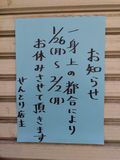 お知らせ
一身上の都合により
1/26(月)〜2/2(月)
お休みさせて頂きます
ぜんとり店主